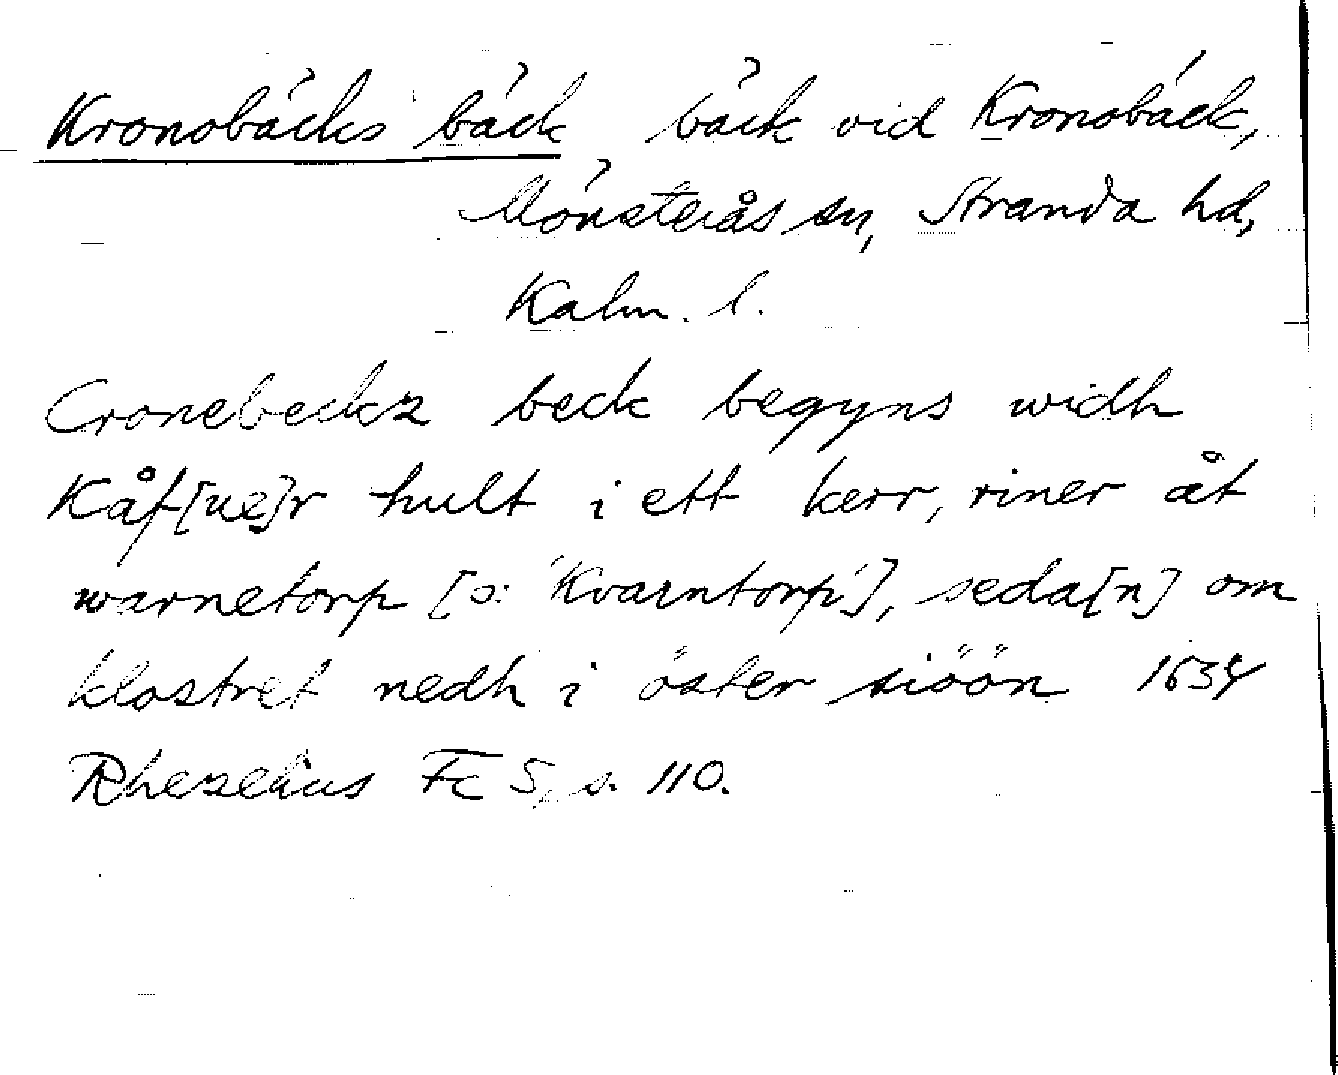 Kronobäcks bäck bäck vid Kronobäck,
Mönsterås sn, Stranda hd,
Kalm. l.
Cronebeckz beck begyns widh
Kåf[ue]r hult i ett kerr, riner åt
warnetorp [ɔ: 'Kvarntorp'], seda[n] om
klostret nedh i öster siöön 1634
Rhezelius Fc 5, s. 110.